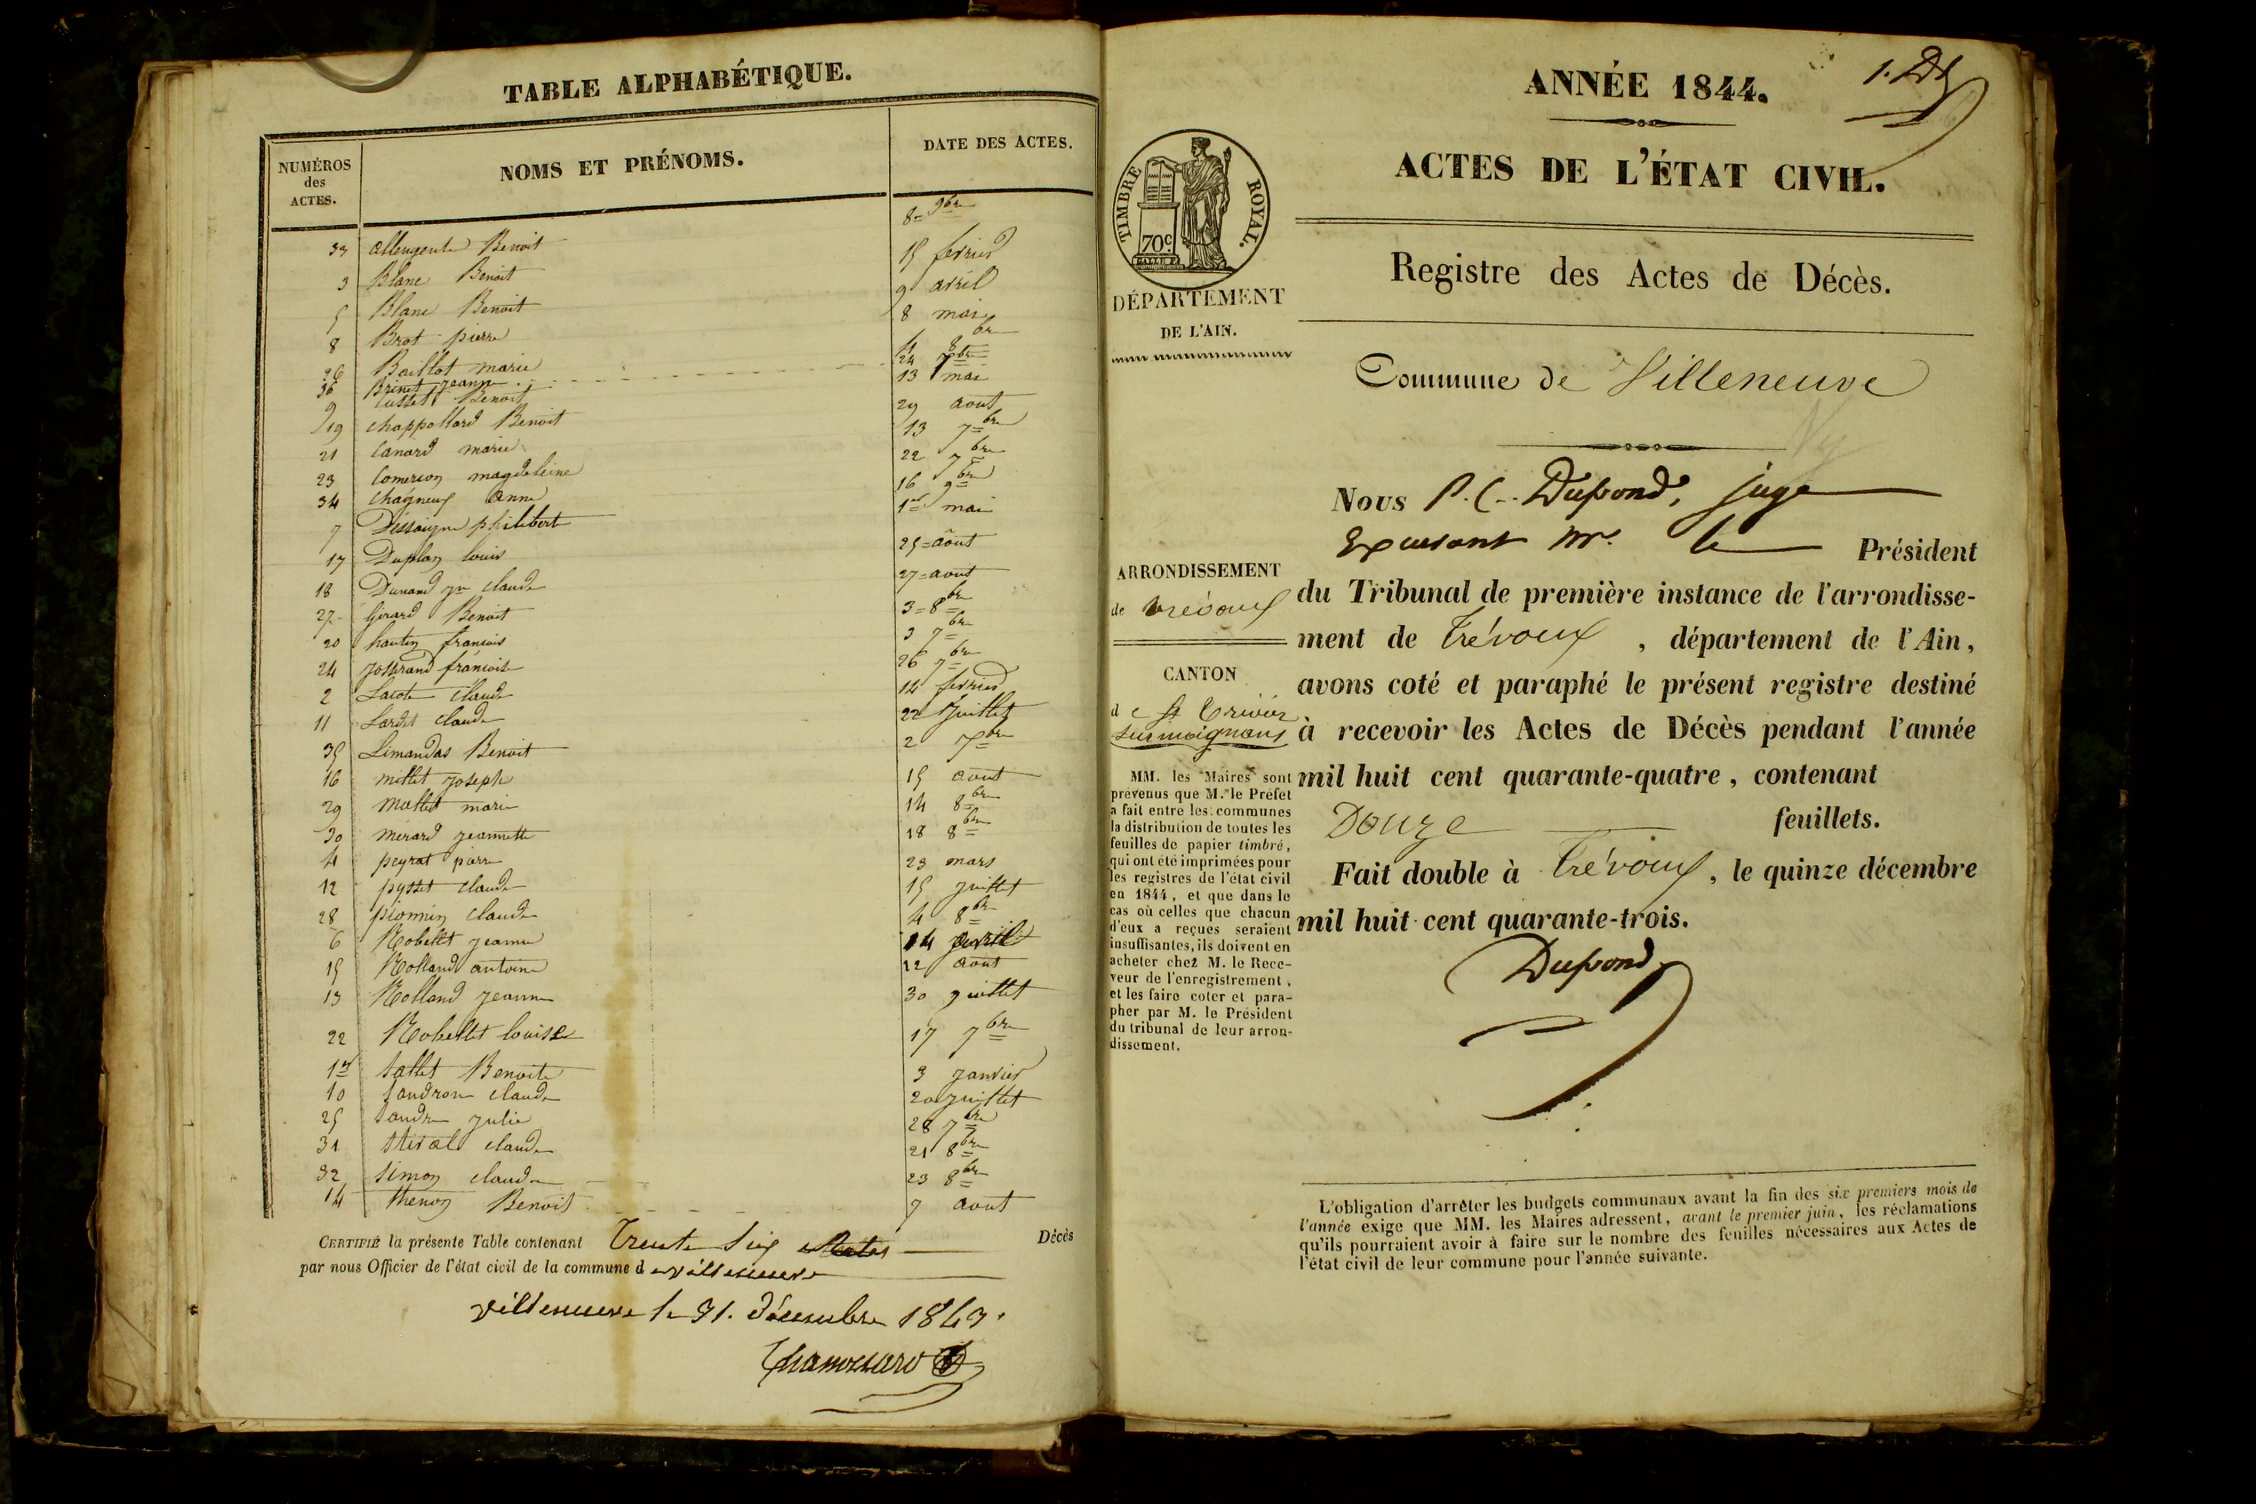 TABLE ALPHABÉTIQUE.
NUMÉROS des ACTES. NOMS ET PRÉNOMS. DATE DES ACTES.
33 Allengente Benoit 8 = 9bre
3 Blanc Benoit 15 fevrier
5 Blanc Benoit 9 avril
8 Brot pierre 8 mai
26 Baillot marie 4 8bre
36 Brinet jeanne 24 7bre
9 Cusset Benoit 13 mai
19 chappollard Benoit 29 aout
21 Canard marie 13 7bre
23 Comerson magdeleine 22 7bre
34 chagneux anne 16 9bre
7 Dessaigne philibert 1er mai
17 Duplan louis 25 = août
18 Durand jn claude 27 = aout
27 Girard Benoit 3 = 8bre
20 hautin francois 3 7bre
24 josserand francois 26 7bre
2 Lacote claude 14 fevrier
11 Lardet claude 22 juillet
35 Limandas Benoit 2 Xbre
16 millet joseph 15 aout
29 mallet marie 14 8bre
30 merard jeannette 18 8bre
4 peyrat pierre 23 mars
12 pysset claude 15 juillet
28 pionnin claude 4 8bre
6 Robellet jeanne 14 avril
15 Rolland antoine 12 aout
13 Rolland jeanne 30 juillet
22 Robellet louise 17 7bre
1er Sallet Benoite 3 janvier
10 Sandron claude 20 juillet
25 Sandre julie 28 7bre
31 claude 21 8bre
32 Simon claude 23 8bre
14 thenon Benoit 9 aout
CERTIFIÉ la présente Table contenant Trente Six Actes Décès
par nous Officier de l'état civil de la commune de villeneuve
villeneuve le 31. décembre 1843.
1. Dd
ANNÉE 1844.
ACTES DE L'ÉTAT CIVIL.
TIMBRE ROYAL.
70c
Registre des Actes de Décès.
DÉPARTEMENT
DE L'AIN.
Commune de Villeneuve
Nous P. C. Dupond, juge
Exerçant Mr. le Président
du Tribunal de première instance de l'arrondisse-
ment de Trévoux, département de l'Ain,
avons coté et paraphé le présent registre destiné
à recevoir les Actes de Décès pendant l'année
mil huit cent quarante-quatre, contenant
Douze feuillets.
Fait double à Trévoux, le quinze décembre
mil huit cent quarante-trois.
Dupond
ARRONDISSEMENT
de trévoux
CANTON
de St Trivier
sur moignans
MM. les Maires sont
prévenus que M. le Préfet
a fait entre les communes
la distribution de toutes les
feuilles de papier timbré,
qui ont été imprimées pour
les registres de l'état civil
en 1844, et que dans le
cas où celles que chacun
d'eux a reçues seraient
insuffisantes, ils doivent en
acheter chez M. le Rece-
veur de l'enregistrement,
et les faire coter et para-
pher par M. le Président
du tribunal de leur arron-
dissement.
L'obligation d'arrêter les budgets communaux avant la fin des six premiers mois de
l'année exige que MM. les Maires adressent, avant le premier juin, les réclamations
qu'ils pourraient avoir à faire sur le nombre des feuilles nécessaires aux Actes de
l'état civil de leur commune pour l'année suivante.